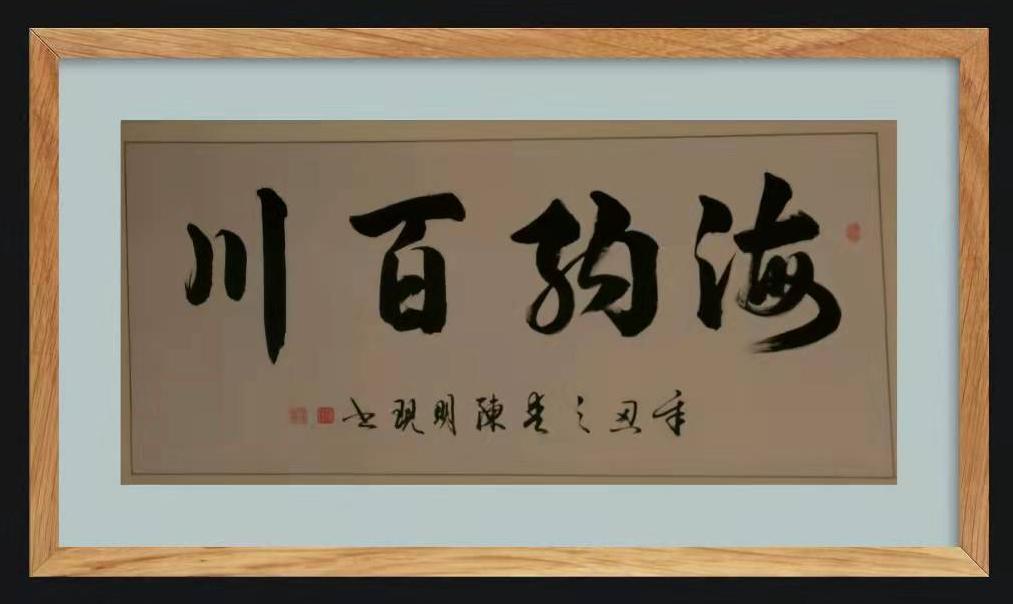 海納百川
辛丑之春陳明現书